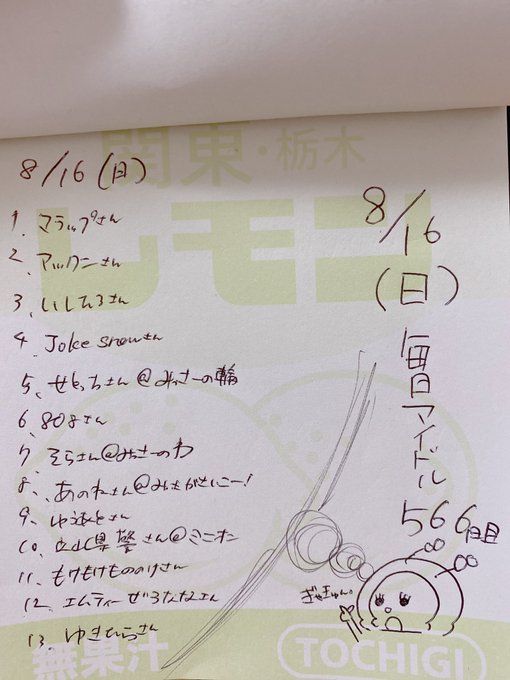 関東・栃木
レモン
8/16(日)
1、マラップさん
2、アックンさん
3、いしひろさん
4、Joke snowさん
5、せとっちさん@みっさーの輪
6、808さん
7、そらさん@みっさーのわ
8、、あのねさん@みっさがさいこー!
9、ゆ
10、立山県警さん@ミニオン
11、もけもけもののけさん
12、エムティーぜろななさん
13、ゆきひらさん
8/16
(日)
毎日マイドル
566日目
ぎゃきゅん。
無果汁
TOCHIGI